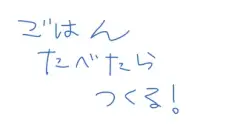 ごはん
たべたら
つくる!